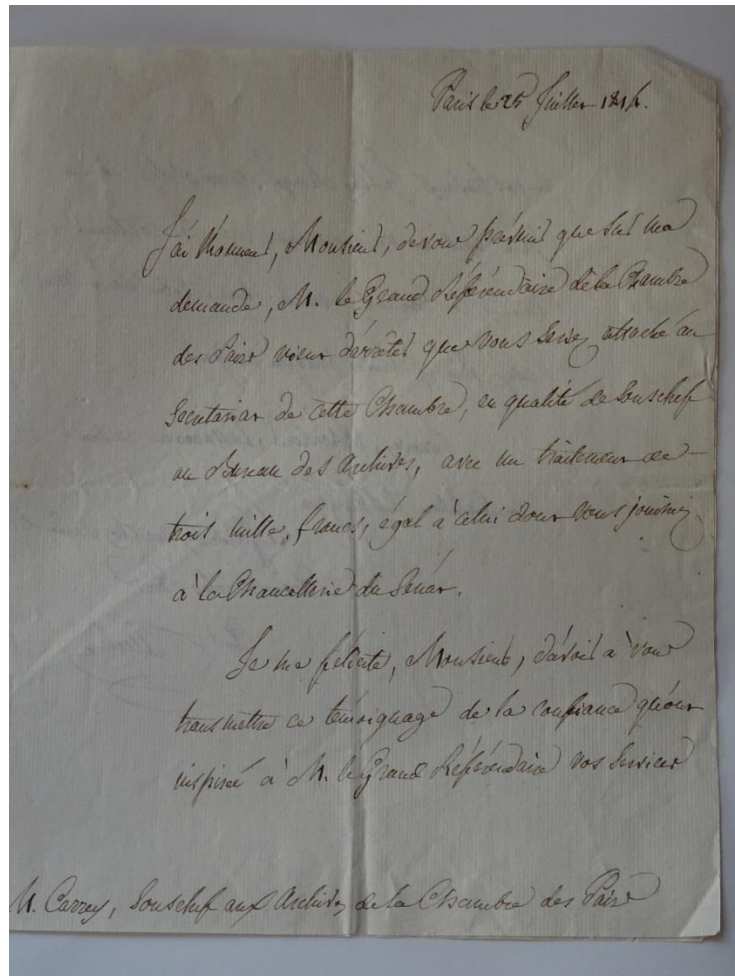 Paris le 25 Juillet 1814.
J'ai l'honneur, Monsieur, de vous prévenir que sur ma
demande, M. le Grand Référendaire de la Chambre
des Pairs vient d'arrêter que vous seriez attaché au
Secrétariat de cette Chambre, en qualité de Souschef
au Bureau des Archives, avec un traitement de
trois mille francs, égal à celui dont vous jouissiez
à la Chancellerie du Sénat.
Je me félicite, Monsieur, d'avoir à vous
transmettre ce témoignage de la confiance qu'ont
inspirée à M. le Grand Référendaire vos Services
M. Carrey, Souschef aux Archives de la Chambre des Pairs